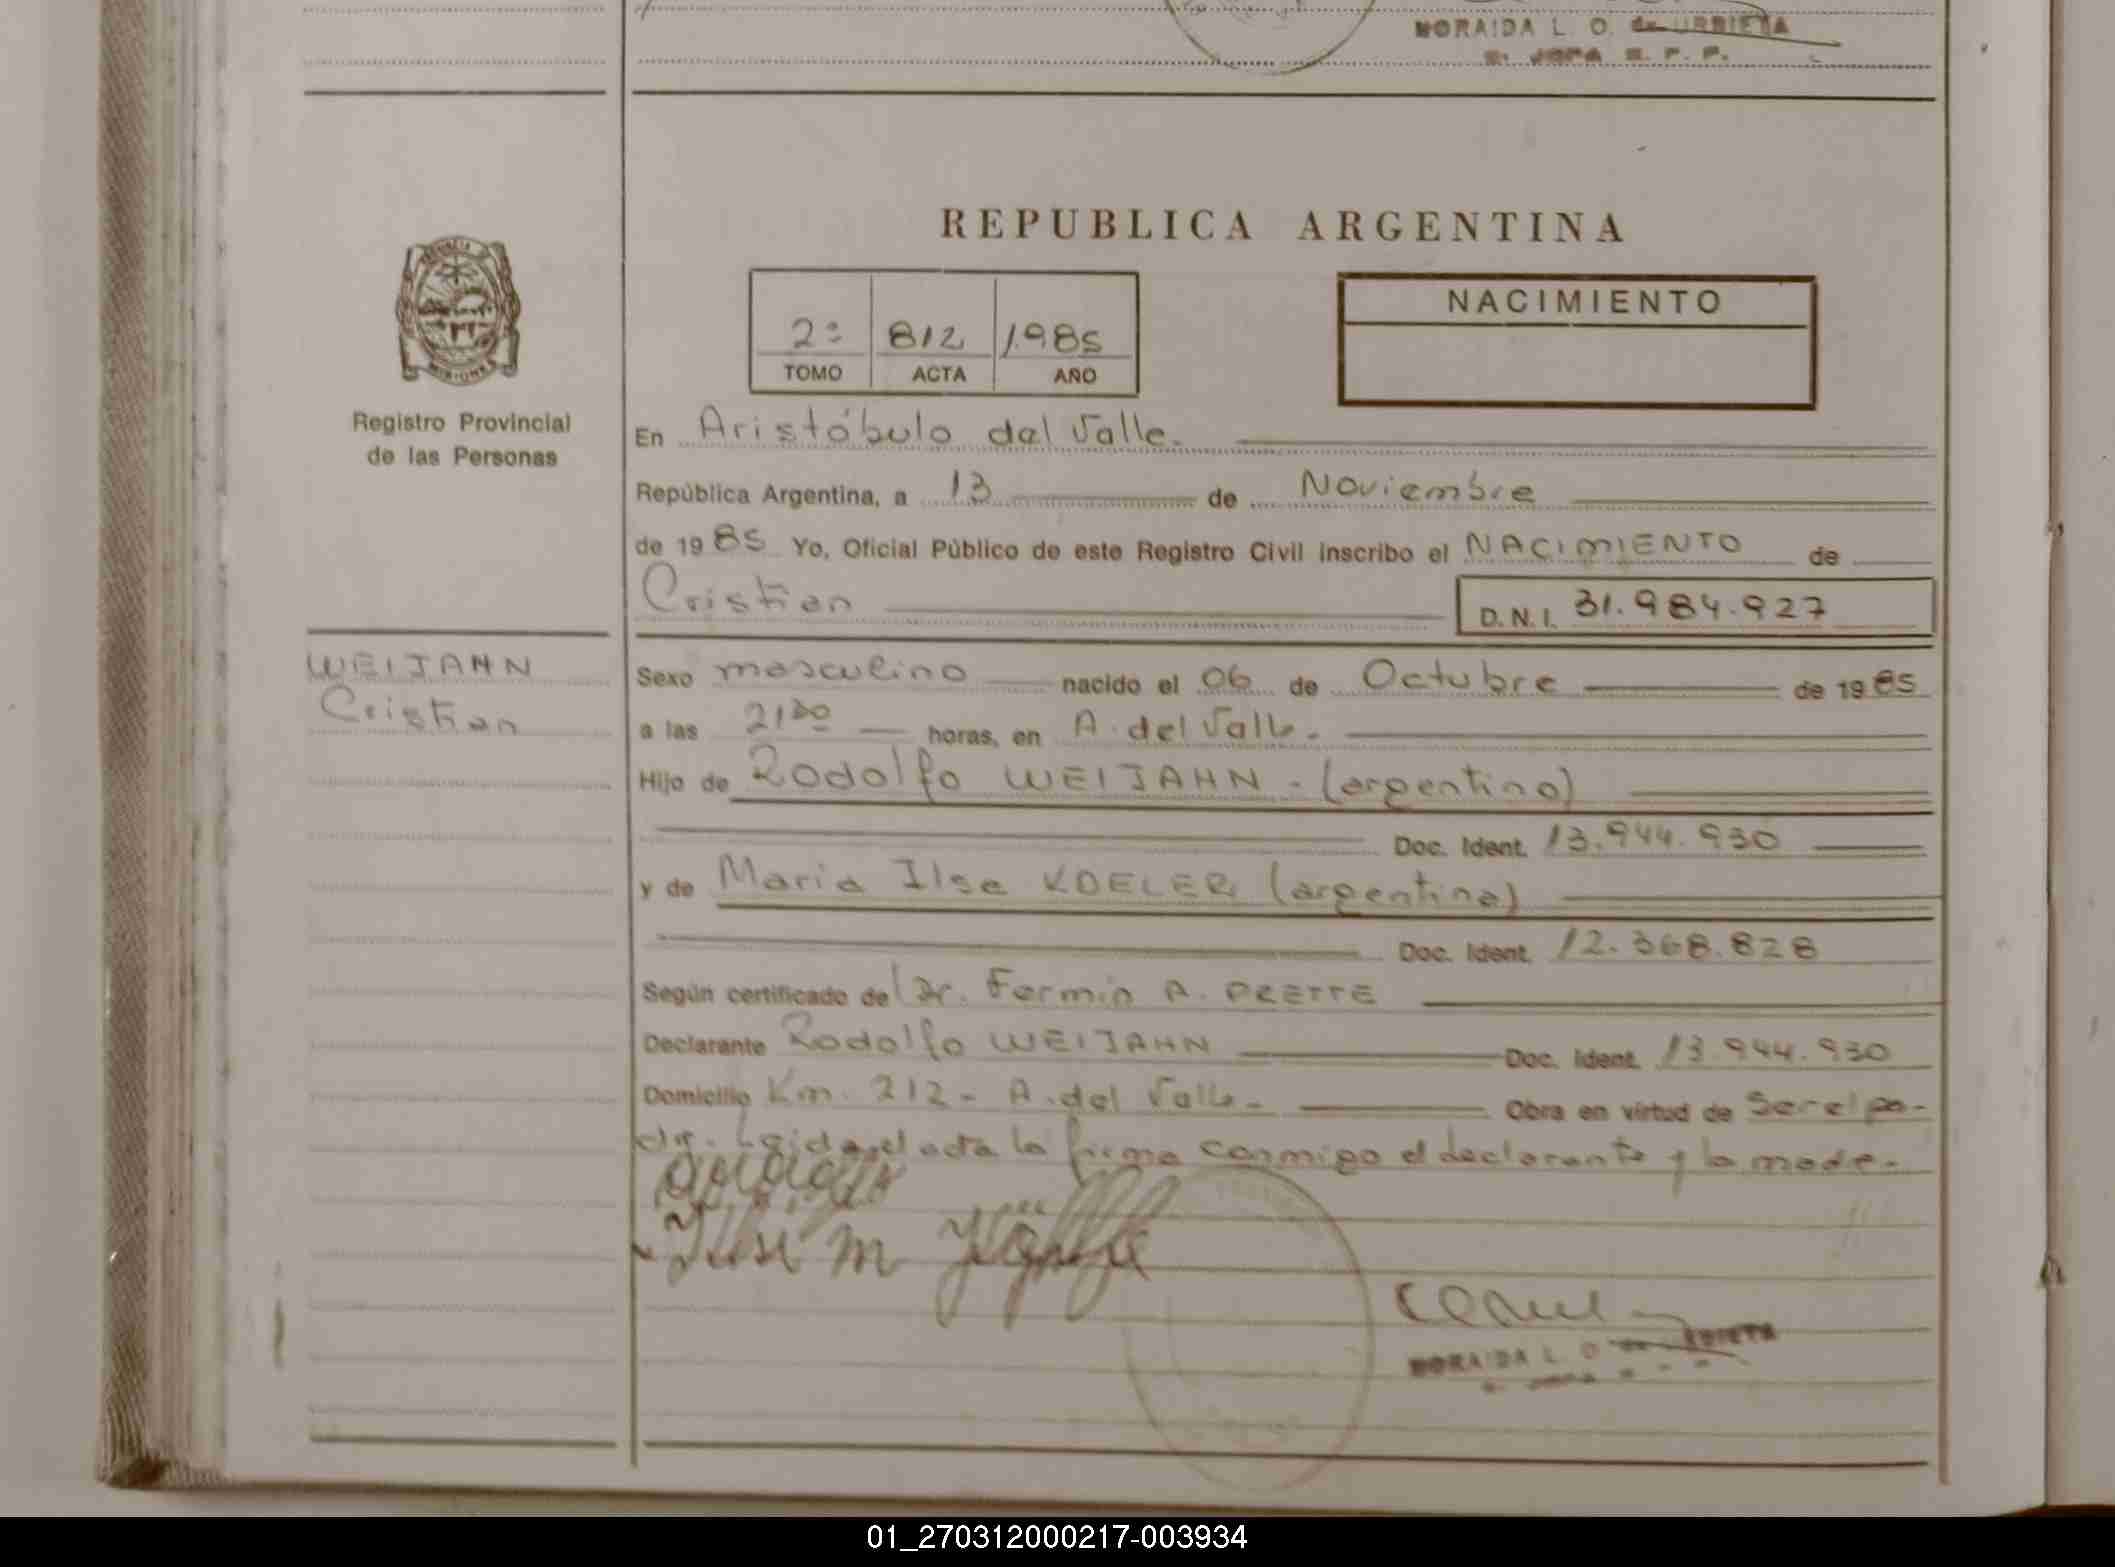 MORAIDA L. O. de URRIETA
REPUBLICA ARGENTINA
NACIMIENTO
2º 812 1985
TOMO ACTA AÑO
Registro Provincial
de las Personas
En Aristóbulo del Valle.
República Argentina, a 13 de Noviembre
de 1985 Yo, Oficial Público de este Registro Civil inscribo el NACIMIENTO de
Cristian D.N.I. 31.984.927
WEIJAHN
Cristian
Sexo masculino nacido el 06 de Octubre de 1985
a las 21³⁰ horas, en A. del Valle.
Hijo de Rodolfo WEIJAHN - (argentino)
Doc. Ident. 13.944.930
y de Maria Ilse KOELER (argentina)
Doc. Ident. 12.368.828
Según certificado de Dr. Fermin A. PRETTE
Declarante Rodolfo WEIJAHN Doc. Ident. 13.944.930
Domicilio Km. 212 - A. del Valle - Obra en virtud de Ser el pa-
dre. Leida el acta la firma conmigo el declarante y la madre.
MORAIDA L. O. de URRIETA
01_270312000217-003934